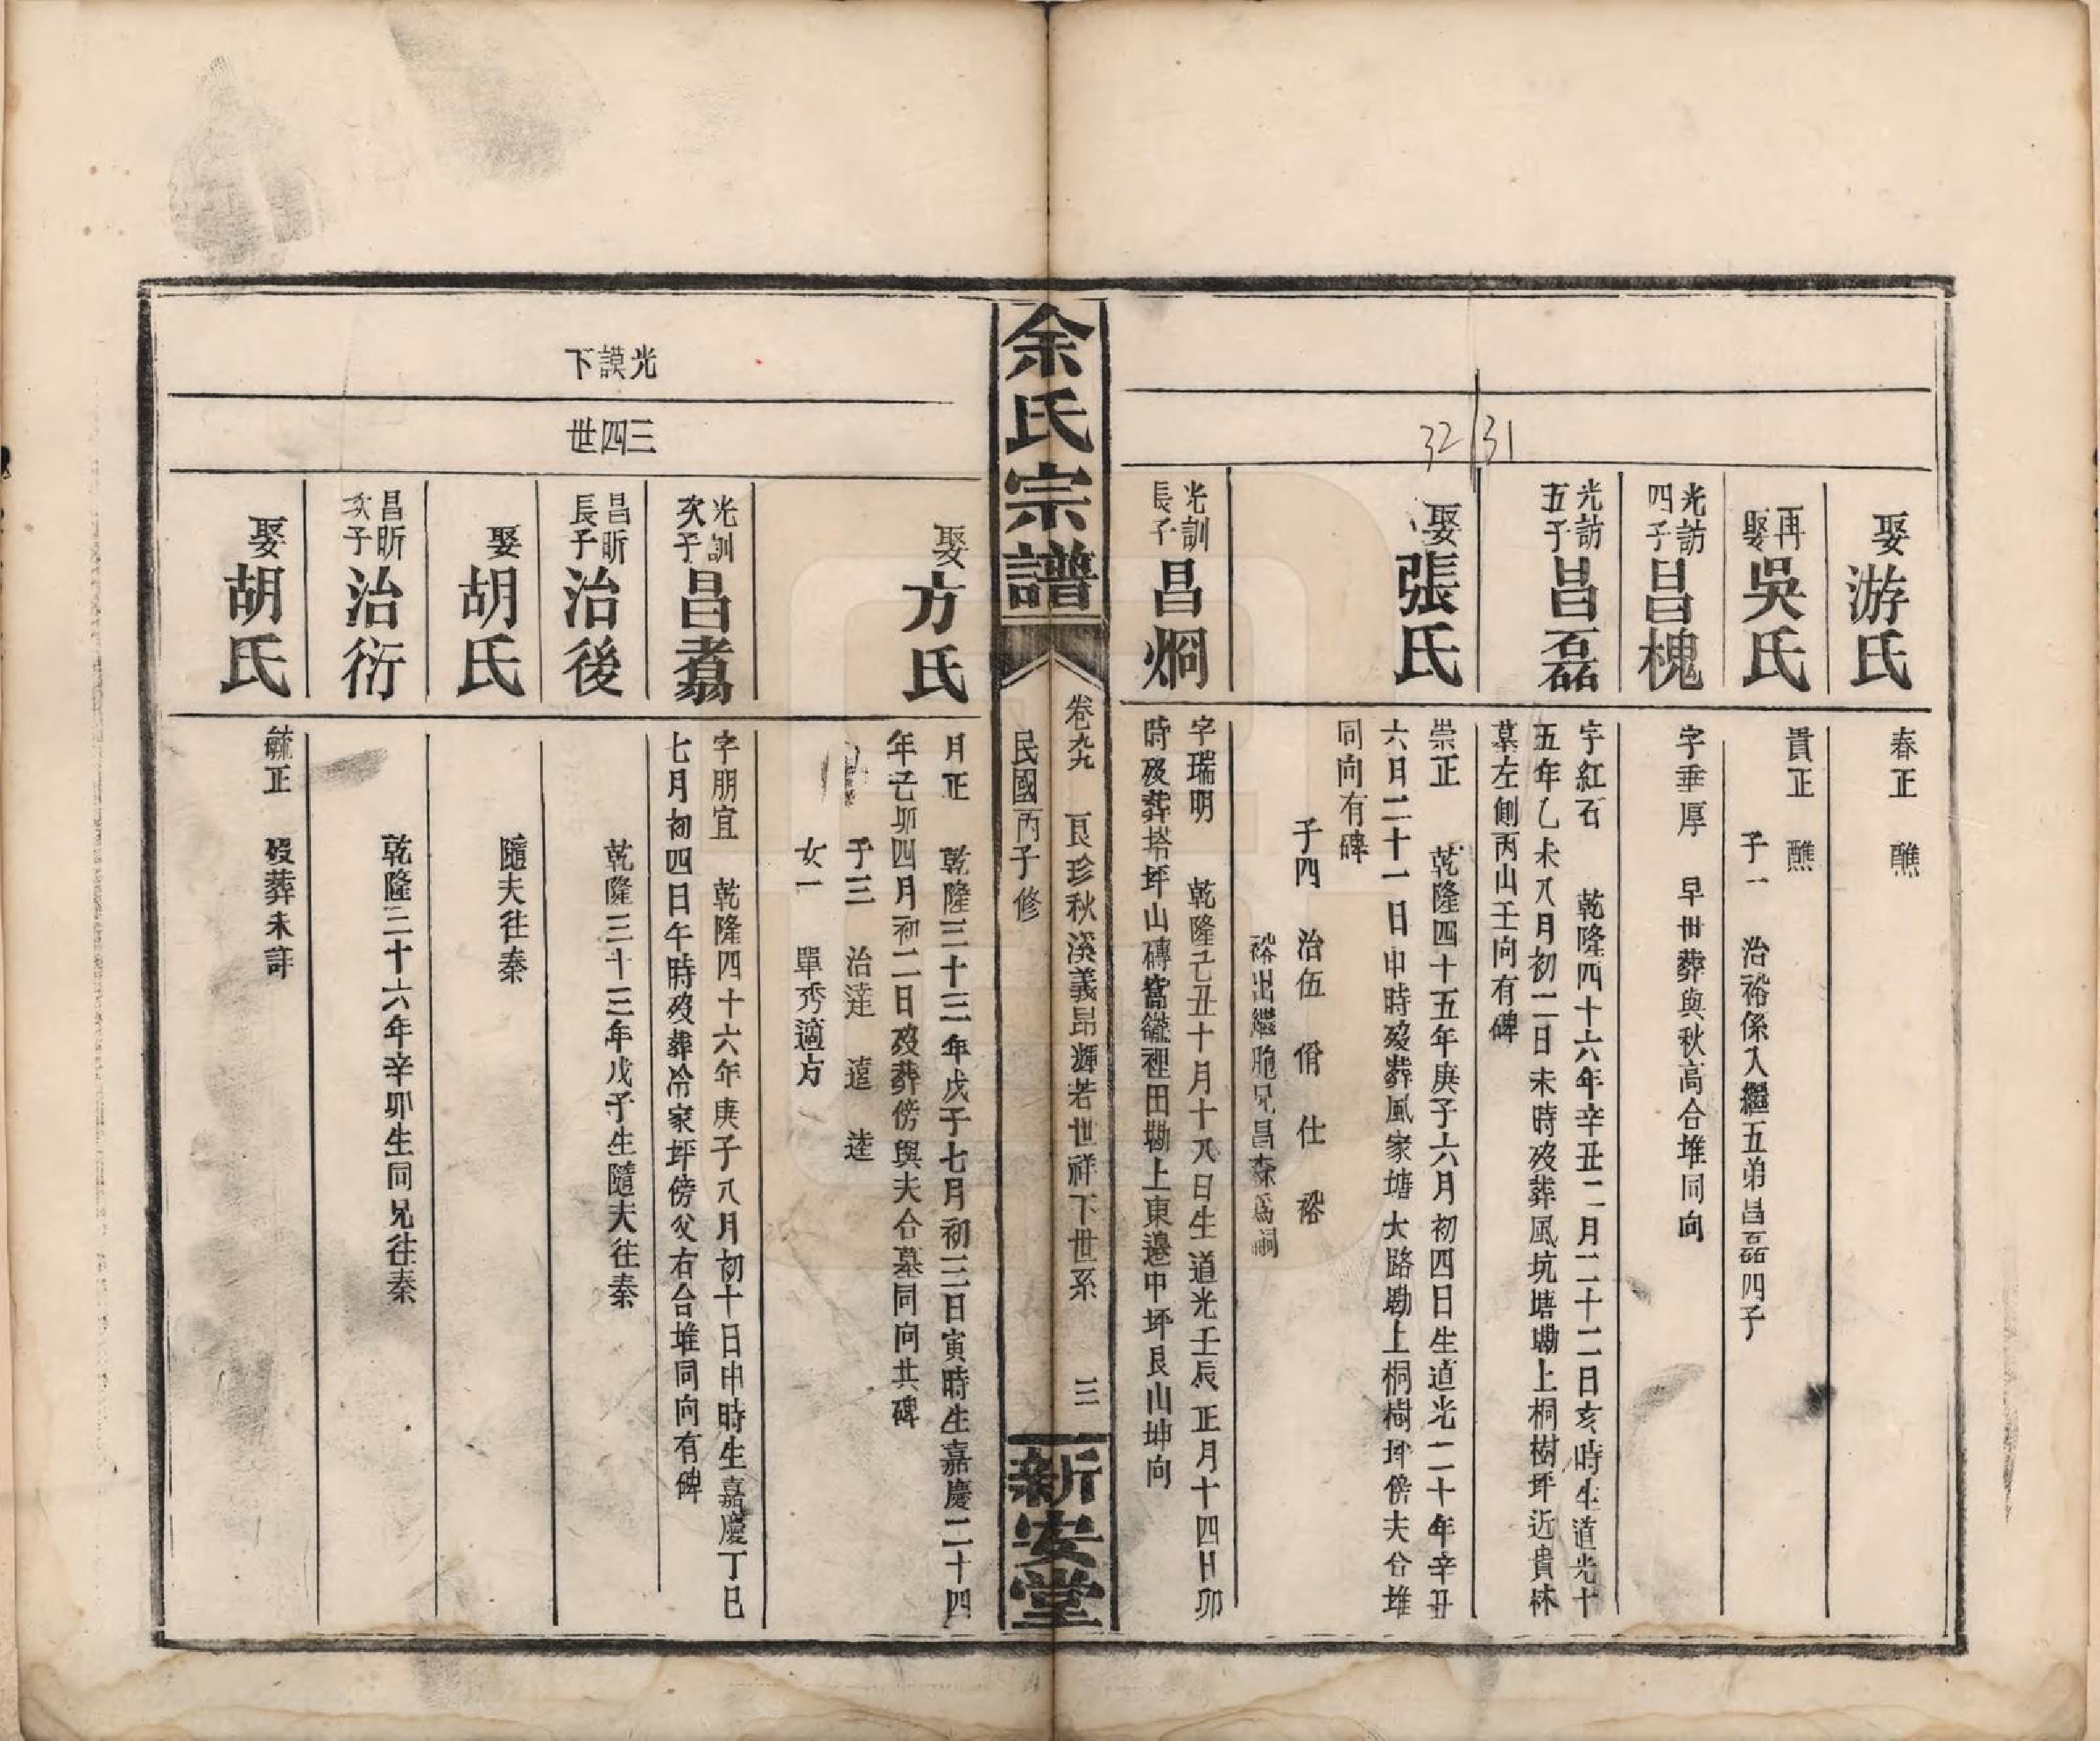 娶游氏
春正　醮
再娶吳氏
貴正　醮
子一　治裕係入繼五弟昌磊四子
光訪四子昌槐
字垂厚　早卌葬與秋高合堆同向
光訪五子昌磊
字紅石　乾隆四十六年辛丑二月二十二日亥時生道光十
五年乙未八月初二日未時歿葬風坑塘墈上桐樹坪近貴林
墓左側丙山壬向有碑
32/31
娶張氏
崇正　乾隆四十五年庚子六月初四日生道光二十年辛丑
六月二十一日申時歿葬風家塘大路墈上桐樹坪傍夫合堆
同向有碑
子四　治伍　脩　仕　裕
裕出繼胞兄昌森爲嗣
光訓長子昌烱
字瑞明　乾隆乙丑十月十八日生道光壬辰正月十四日卯
時歿葬塔坪山磚窰裡田墈上東邊中坪艮山坤向
余氏宗譜
卷九　艮珍秋溪義昂輝若世祥下世系　三
民國丙子修
新安堂
光謨下
三四世
娶方氏
月正　乾隆三十三年戊子七月初三日寅時生嘉慶二十四
年己卯四月初二日歿葬傍與夫合墓同向共碑
子三　治達　遠　逵
女一　單秀適方
光訓次子昌翥
字朋宜　乾隆四十六年庚子八月初十日申時生嘉慶丁巳
七月初四日午時歿葬冷家坪傍父右合堆同向有碑
昌昕長子治後
乾隆三十三年戊子生隨夫往秦
娶胡氏
隨夫往秦
昌昕次子治衍
乾隆三十六年辛卯生同兄往秦
娶胡氏
毓正　歿葬未詳